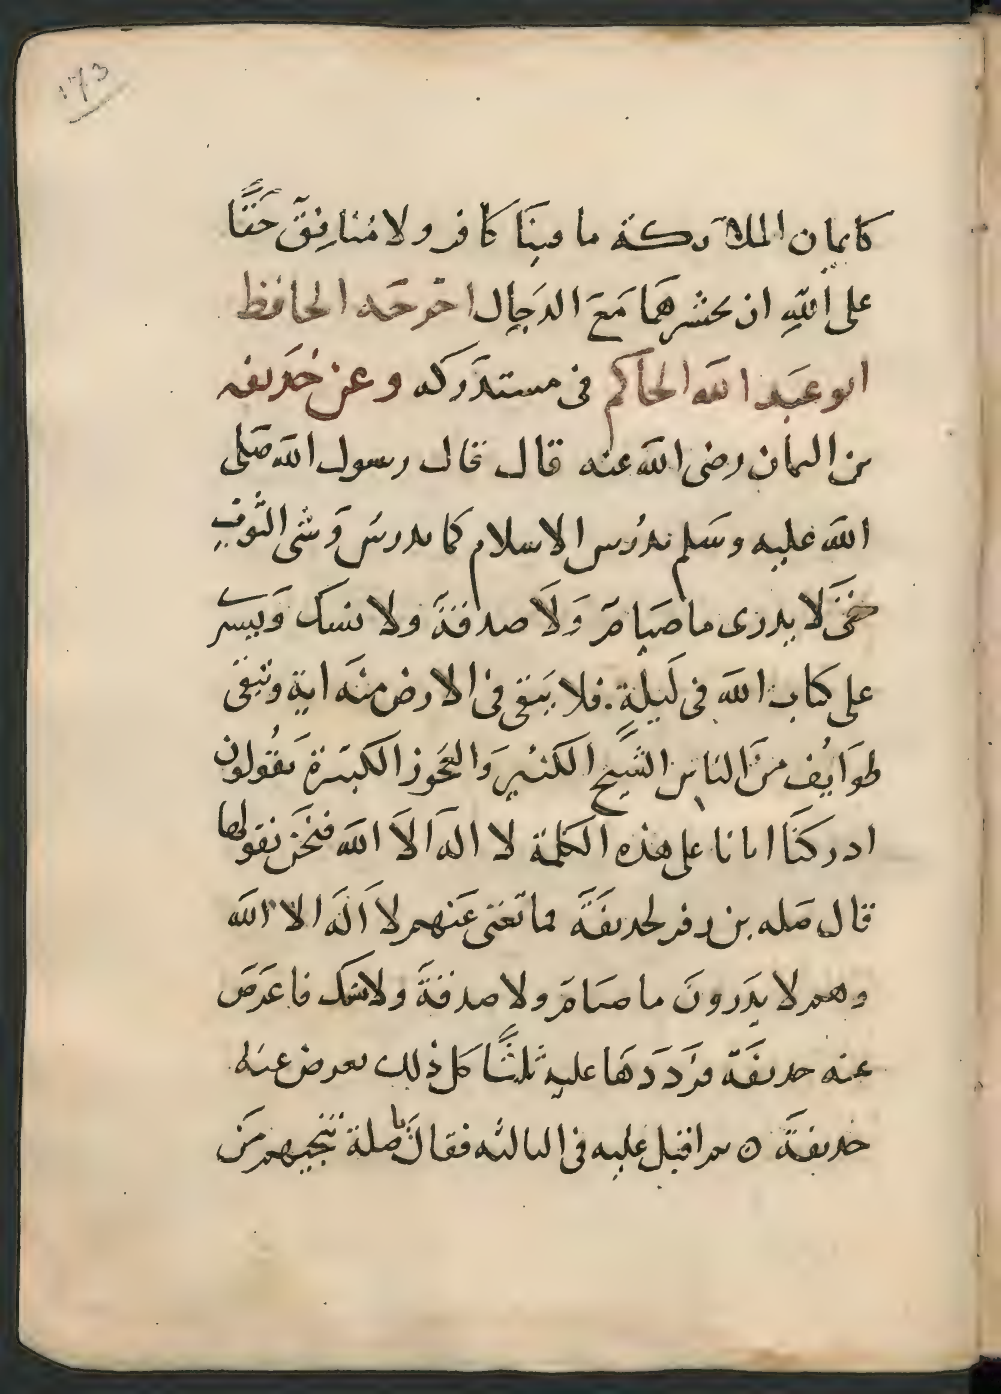 ١٧٣
كايمان الملائكة ما فينا كافر ولا منافق حقا
على الله ان يحشرهما مع الدجال اخرجه الحافظ
ابو عبد الله الحاكم فى مستدركه وعن حذيفه
بن اليمان رضى الله عنه قال قال رسول الله صلى
الله عليه وسلم يدرس الاسلام كما يدرس وشى الثوب
حتى لا يدرى ما صيام ولا صدقة ولا نسك ويسرى
على كتاب الله فى ليلة فلا يبقى فى الارض منه اية وتبقى
طوايف من الناس الشيخ الكبير والعجوز الكبيرة يقولون
ادركنا ابانا على هذه الكلمة لا اله الا الله فنحن نقولها
قال صله بن زفر لحذيفة فما تغنى عنهم لا اله الا الله
وهم لا يدرون ما صيام ولا صدقة ولا نسك فاعرض
عنه حذيفة فرددها عليه ثلثا كل ذلك يعرض عنه
حذيفة ه ثم اقبل عليه فى الثالثه فقال يا صلة تنجيهم من